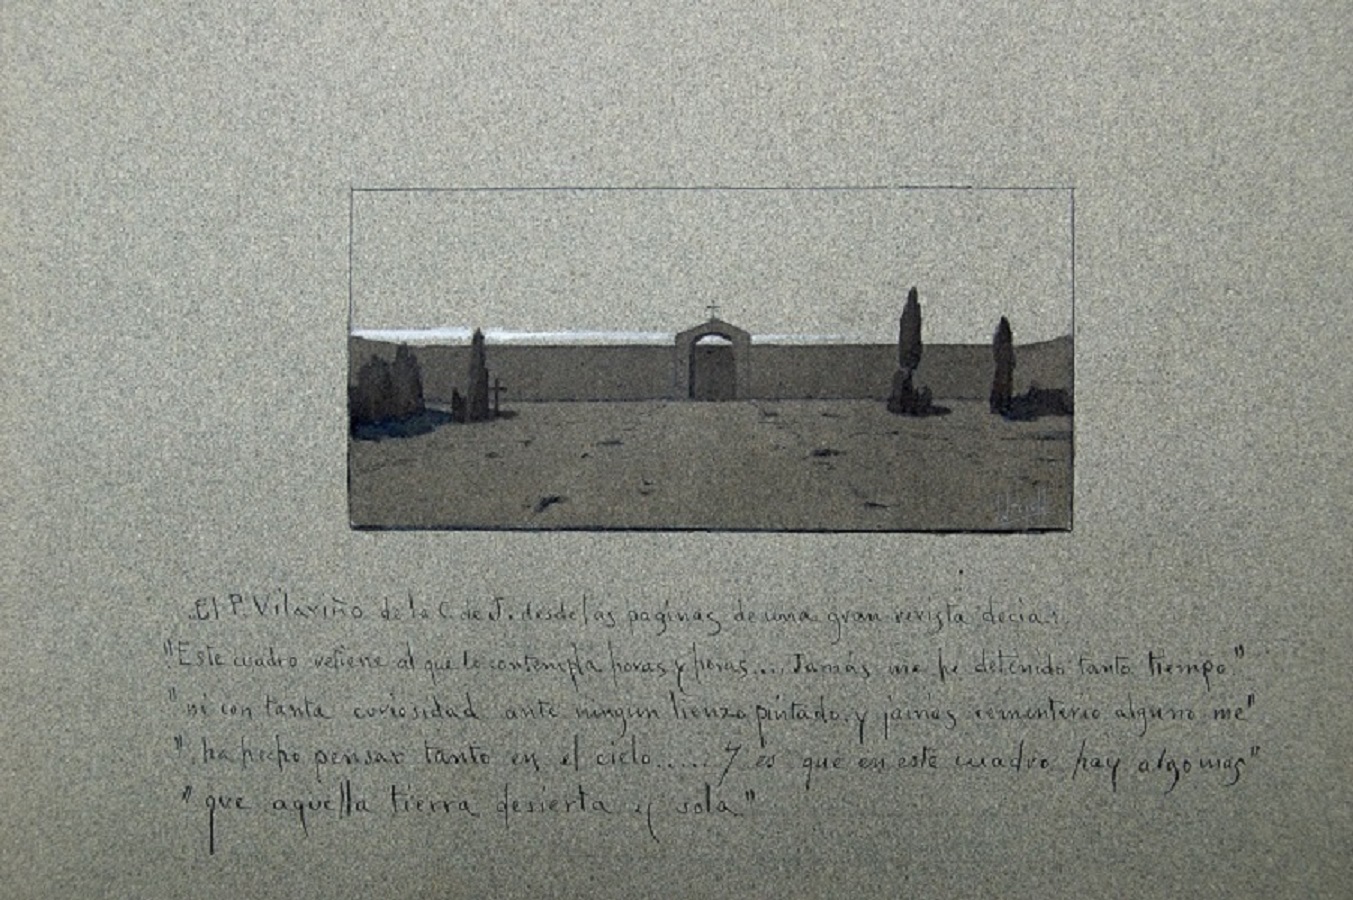 El P. Vilariño de la C. de J. desde las paginas de una gran revista decia:
"Este cuadro retiene al que lo contempla horas y horas... Jamás me he detenido tanto tiempo"
"ni con tanta curiosidad ante ningun lienzo pintado, y jamás cementerio alguno me"
"ha hecho pensar tanto en el cielo..... Y es que en este cuadro hay algo mas"
"que aquella tierra desierta y sola"